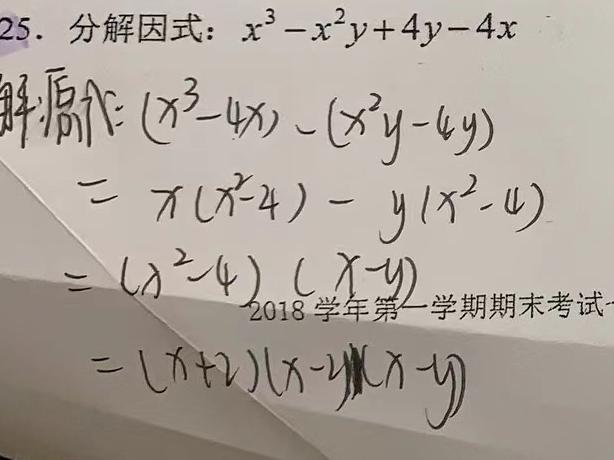 25. 分解因式: x³-x²y+4y-4x
解:原式: (x³-4x)-(x²y-4y)
= x(x²-4)-y(x²-4)
= (x²-4)(x-y)
2018 学年第一学期期末考试
= (x+2)(x-2)(x-y)